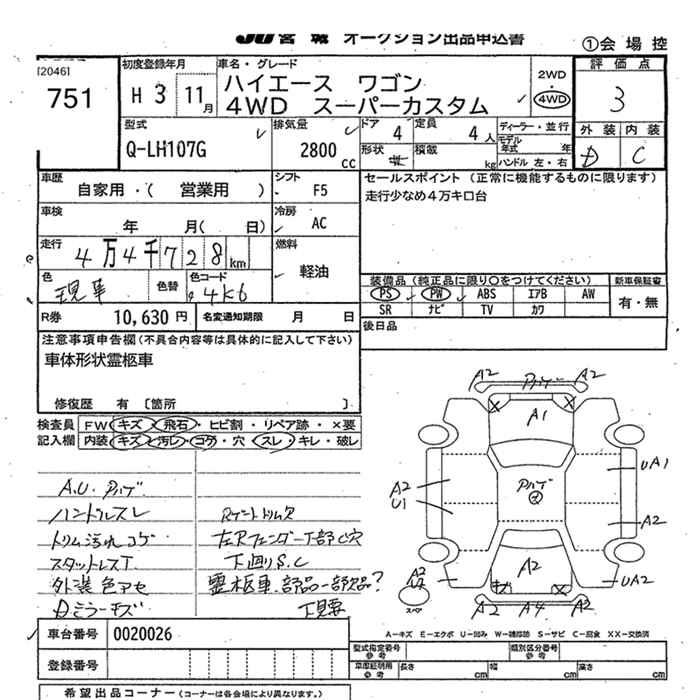 JU宮城 オークション出品申込書
①会場控
[2046]
751
初度登録年月
H 3 11月
車名・グレード
ハイエース ワゴン
4WD スーパーカスタム
2WD
4WD
評価点
3
外装 内装
D C
型式
Q-LH107G
排気量
2800 cc
ドア 4
定員 4人
形状
積載 kg
ディーラー・並行
モデル年式 年
ハンドル 左・右
車歴
自家用・( 営業用 )
シフト F5
車検 年 月( 日)
冷房 AC
走行 4万4千728km
燃料 軽油
色 現車
色替
色コード 4K6
R券 10,630円
名変通知期限 月 日
セールスポイント (正常に機能するものに限ります)
走行少なめ4万キロ台
装備品 (純正品に限り○をつけてください)
新車保証書
PS PW ABS エアB AW
SR ナビ TV カワ
有・無
後日品
注意事項申告欄 (不具合内容等は具体的に記入して下さい)
車体形状霊柩車
修復歴 有 〔箇所 〕
検査員記入欄
FW キズ・飛石・ヒビ割・リペア跡・×要
内装 キズ・汚レ・コゲ・穴・スレ・キレ・破レ
A.U.アハゲ
ハンドルスレ
トリム汚れコゲ
スタットレスT
外装色アセ
Dミラーキズ
Rゲートトリム欠
左Rフェンダー下部C穴
下廻りS.C
霊柩車.部品一部欠品?
下見要
A2 アハゲ A2
A1
A2
U1
アハゲ
②
UA1
A2
A2
UA2
A2
U2
スペア
A2 A4 A2
A-キズ E-エクボ U-凹み W-補修跡 S-サビ C-腐食 XX-交換済
車台番号 0020026
登録番号
型式指定番号 参考
類別区分番号 参考
車庫証明用 参考
長さ cm 幅 cm 高さ cm
希望出品コーナー (コーナーは各会場により異なります。)